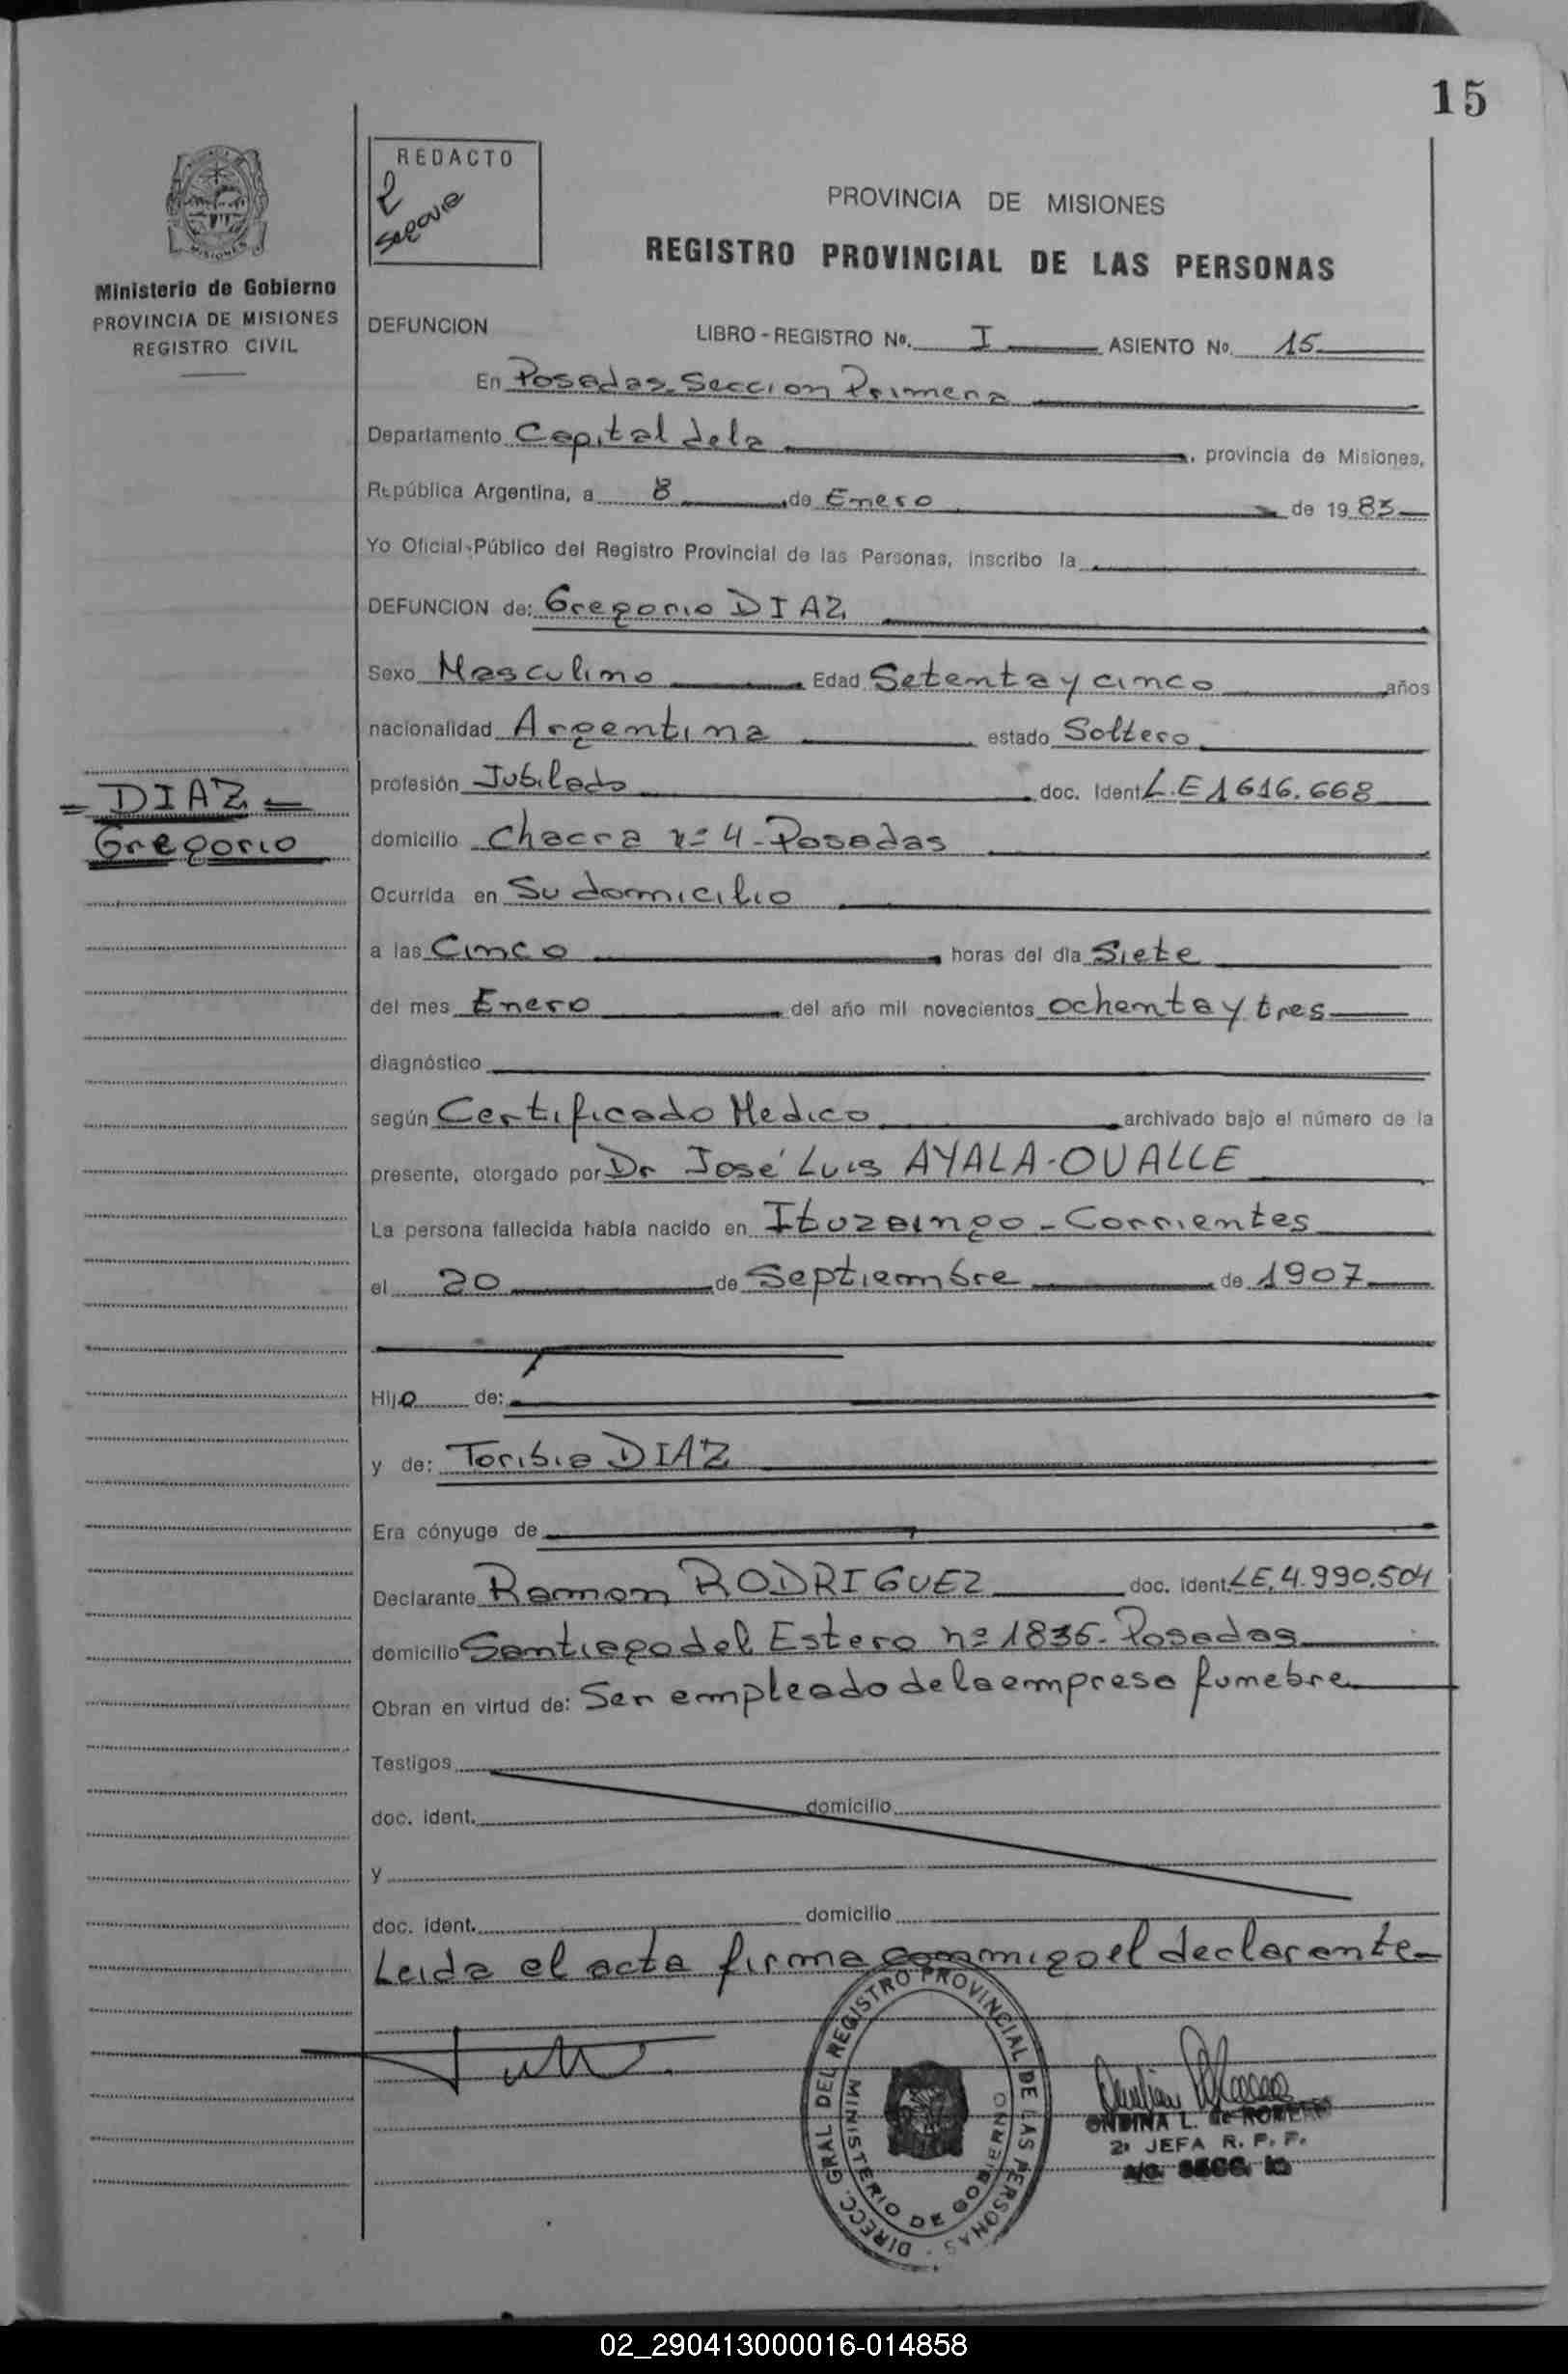 15
REDACTO
MISIONES
PROVINCIA DE MISIONES
REGISTRO PROVINCIAL DE LAS PERSONAS
Ministerio de Gobierno
PROVINCIA DE MISIONES
REGISTRO CIVIL
DEFUNCION LIBRO-REGISTRO Nº. I ASIENTO Nº. 15
En Posadas-Seccion Primera
Departamento Capital de la , provincia de Misiones,
República Argentina, a 8 de Enero de 1983
Yo Oficial Público del Registro Provincial de las Personas, inscribo la
DEFUNCION de: Gregorio DIAZ
Sexo Masculino Edad Setenta y cinco años
nacionalidad Argentina estado Soltero
profesión Jubilado doc. Ident L.E 1616.668
= DIAZ =
Gregorio
domicilio Chacra nº 4-Posadas
Ocurrida en Su domicilio
a las Cinco horas del día Siete
del mes Enero del año mil novecientos ochenta y tres
diagnóstico
según Certificado Medico archivado bajo el número de la
presente, otorgado por Dr José Luis AYALA-OVALLE
La persona fallecida había nacido en Ituzaingo - Corrientes
el 20 de Septiembre de 1907
Hijo de:
y de: Toribia DIAZ
Era cónyuge de
Declarante Ramon RODRIGUEZ doc. ident. LE. 4.990.504
domicilio Santiago del Estero nº 1836-Posadas
Obran en virtud de: Ser empleado de la empresa funebre
Testigos
doc. ident. domicilio
y
doc. ident. domicilio
Leida el acta firma conmigo el declarante-
DIRECC. GRAL DEL REGISTRO PROVINCIAL DE LAS PERSONAS
MINISTERIO DE GOBIERNO
ONDINA L. de ROMERO
2ª JEFA R. P. P.
02_290413000016-014858